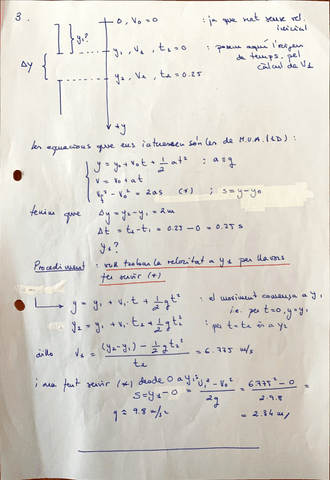 3.
0, V₀ = 0 : ja que cau sense vel. inicial
y₁?
y₁, V₁, t₁ = 0 : posem aquí l'origen de temps, pel càlcul de V₁
Δy
y₂, V₂, t₂ = 0.25
+y
les equacions que ens interessen són les de M.U.A. (1D) :
y = y₀ + v₀t + 1/2 at² ; a ≡ g
v = v₀ + at
v_f² - v₀² = 2as (*) ; s = y - y₀
tenim que Δy = y₂ - y₁ = 2m
Δt = t₂ - t₁ = 0.25 - 0 = 0.25 s
y₁?
Procediment : vull trobar la velocitat a y₁ per llavors
fer servir (*)
y = y₁ + v₁ t + 1/2 gt² : el moviment comença a y₁
i.e. per t=0, y=y₁
y₂ = y₁ + v₁ t₂ + 1/2 gt₂² : per t=t₂ és a y₂
aïllo V₁ = ((y₂ - y₁) - 1/2 gt₂²) / t₂ = 6.775 m/s
i ara fent servir (*) desde 0 a y₁:
s = y₁ - 0 = (v₁² - v₀²) / 2g = (6.775² - 0) / 2·9.8
g = 9.8 m/s² = 2.34 m